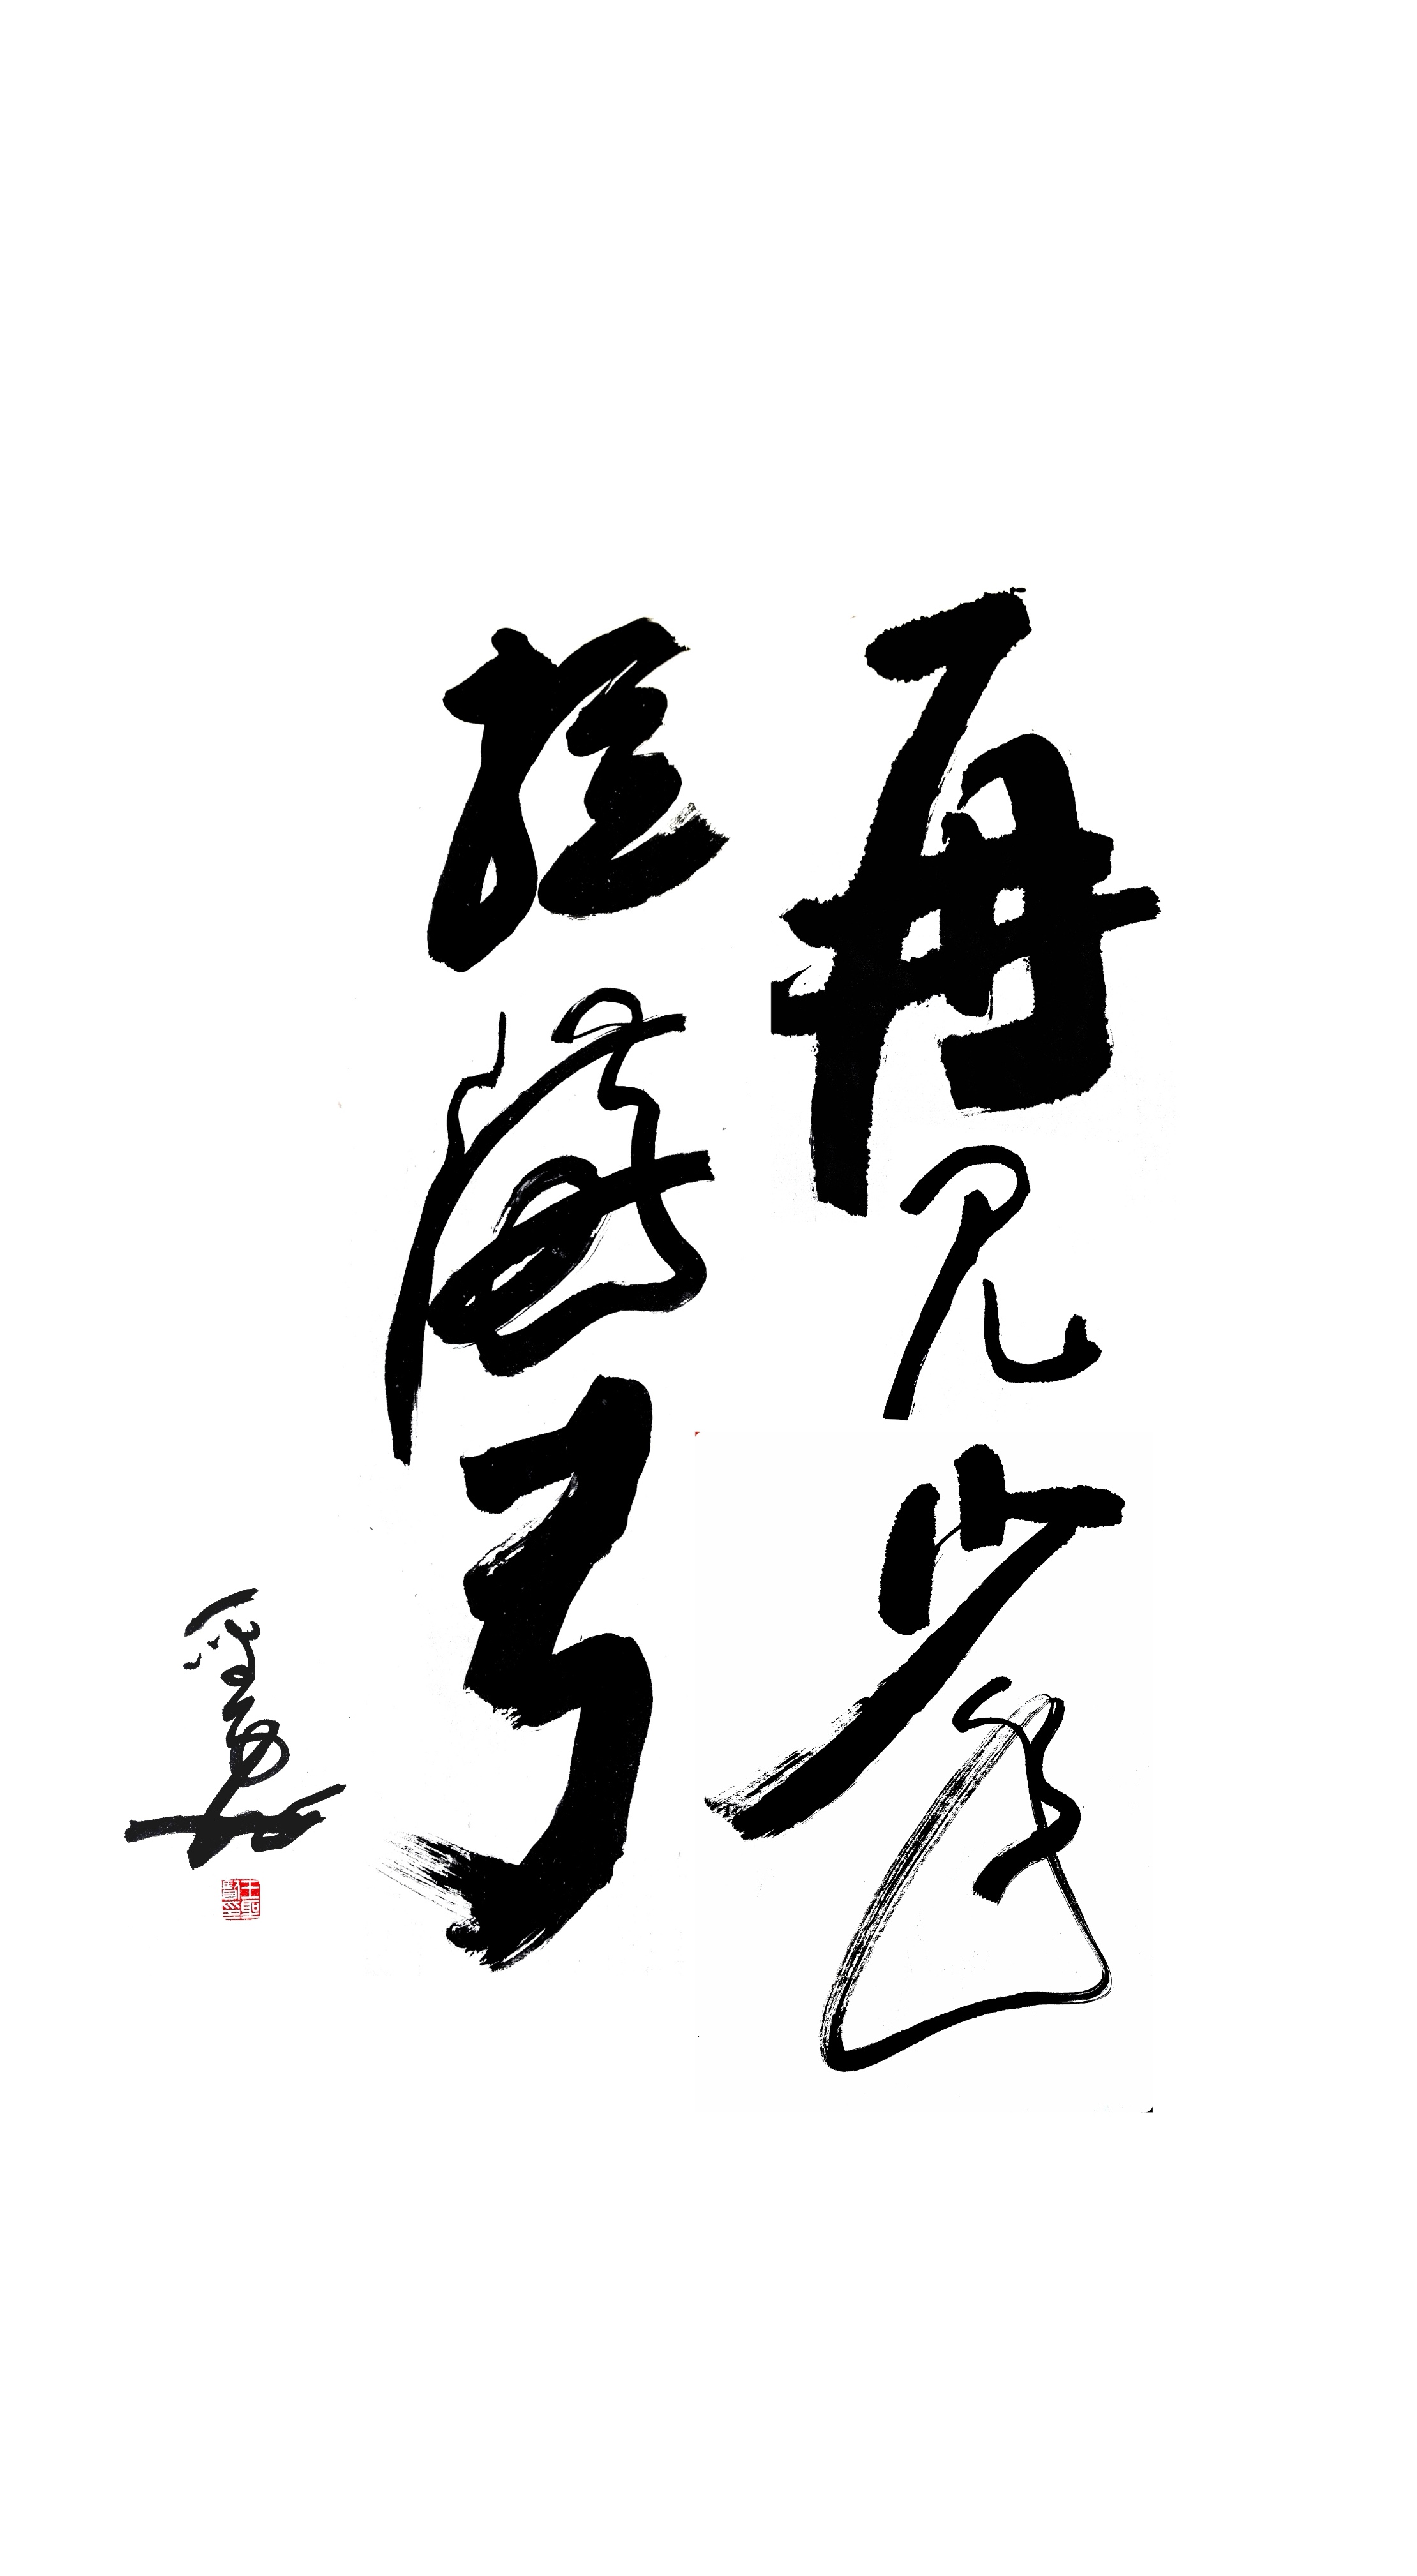 再见少年
拉满弓